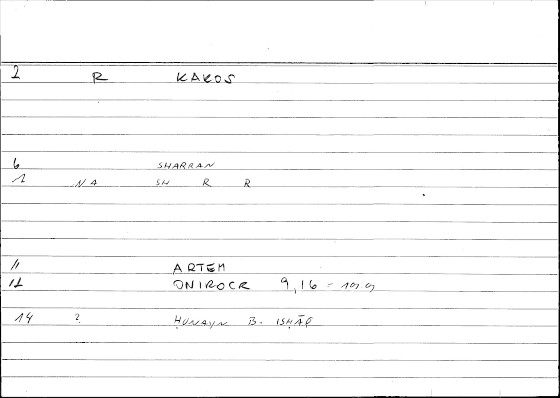 2 R KAKOS
6 SHARRAN
1 NA SH R R
11 ARTEM
12 ONIROCR 9,16 -
14 ? ḤUNAYN B. ISḤĀQ